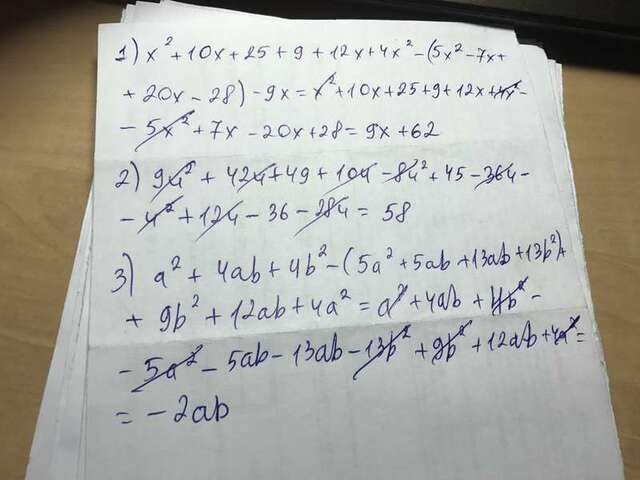 1) x² + 10x + 25 + 9 + 12x + 4x² - (5x² - 7x +
+ 20x - 28) - 9x = x² + 10x + 25 + 9 + 12x + 4x² -
- 5x² + 7x - 20x + 28 = 9x + 62
2) 9u² + 42u + 49 + 10u - 8u² + 45 - 36u -
- u² + 12u - 36 - 28u = 58
3) a² + 4ab + 4b² - (5a² + 5ab + 13ab + 13b²) +
+ 9b² + 12ab + 4a² = a² + 4ab + 4b² -
- 5a² - 5ab - 13ab - 13b² + 9b² + 12ab + 4a² =
= - 2ab